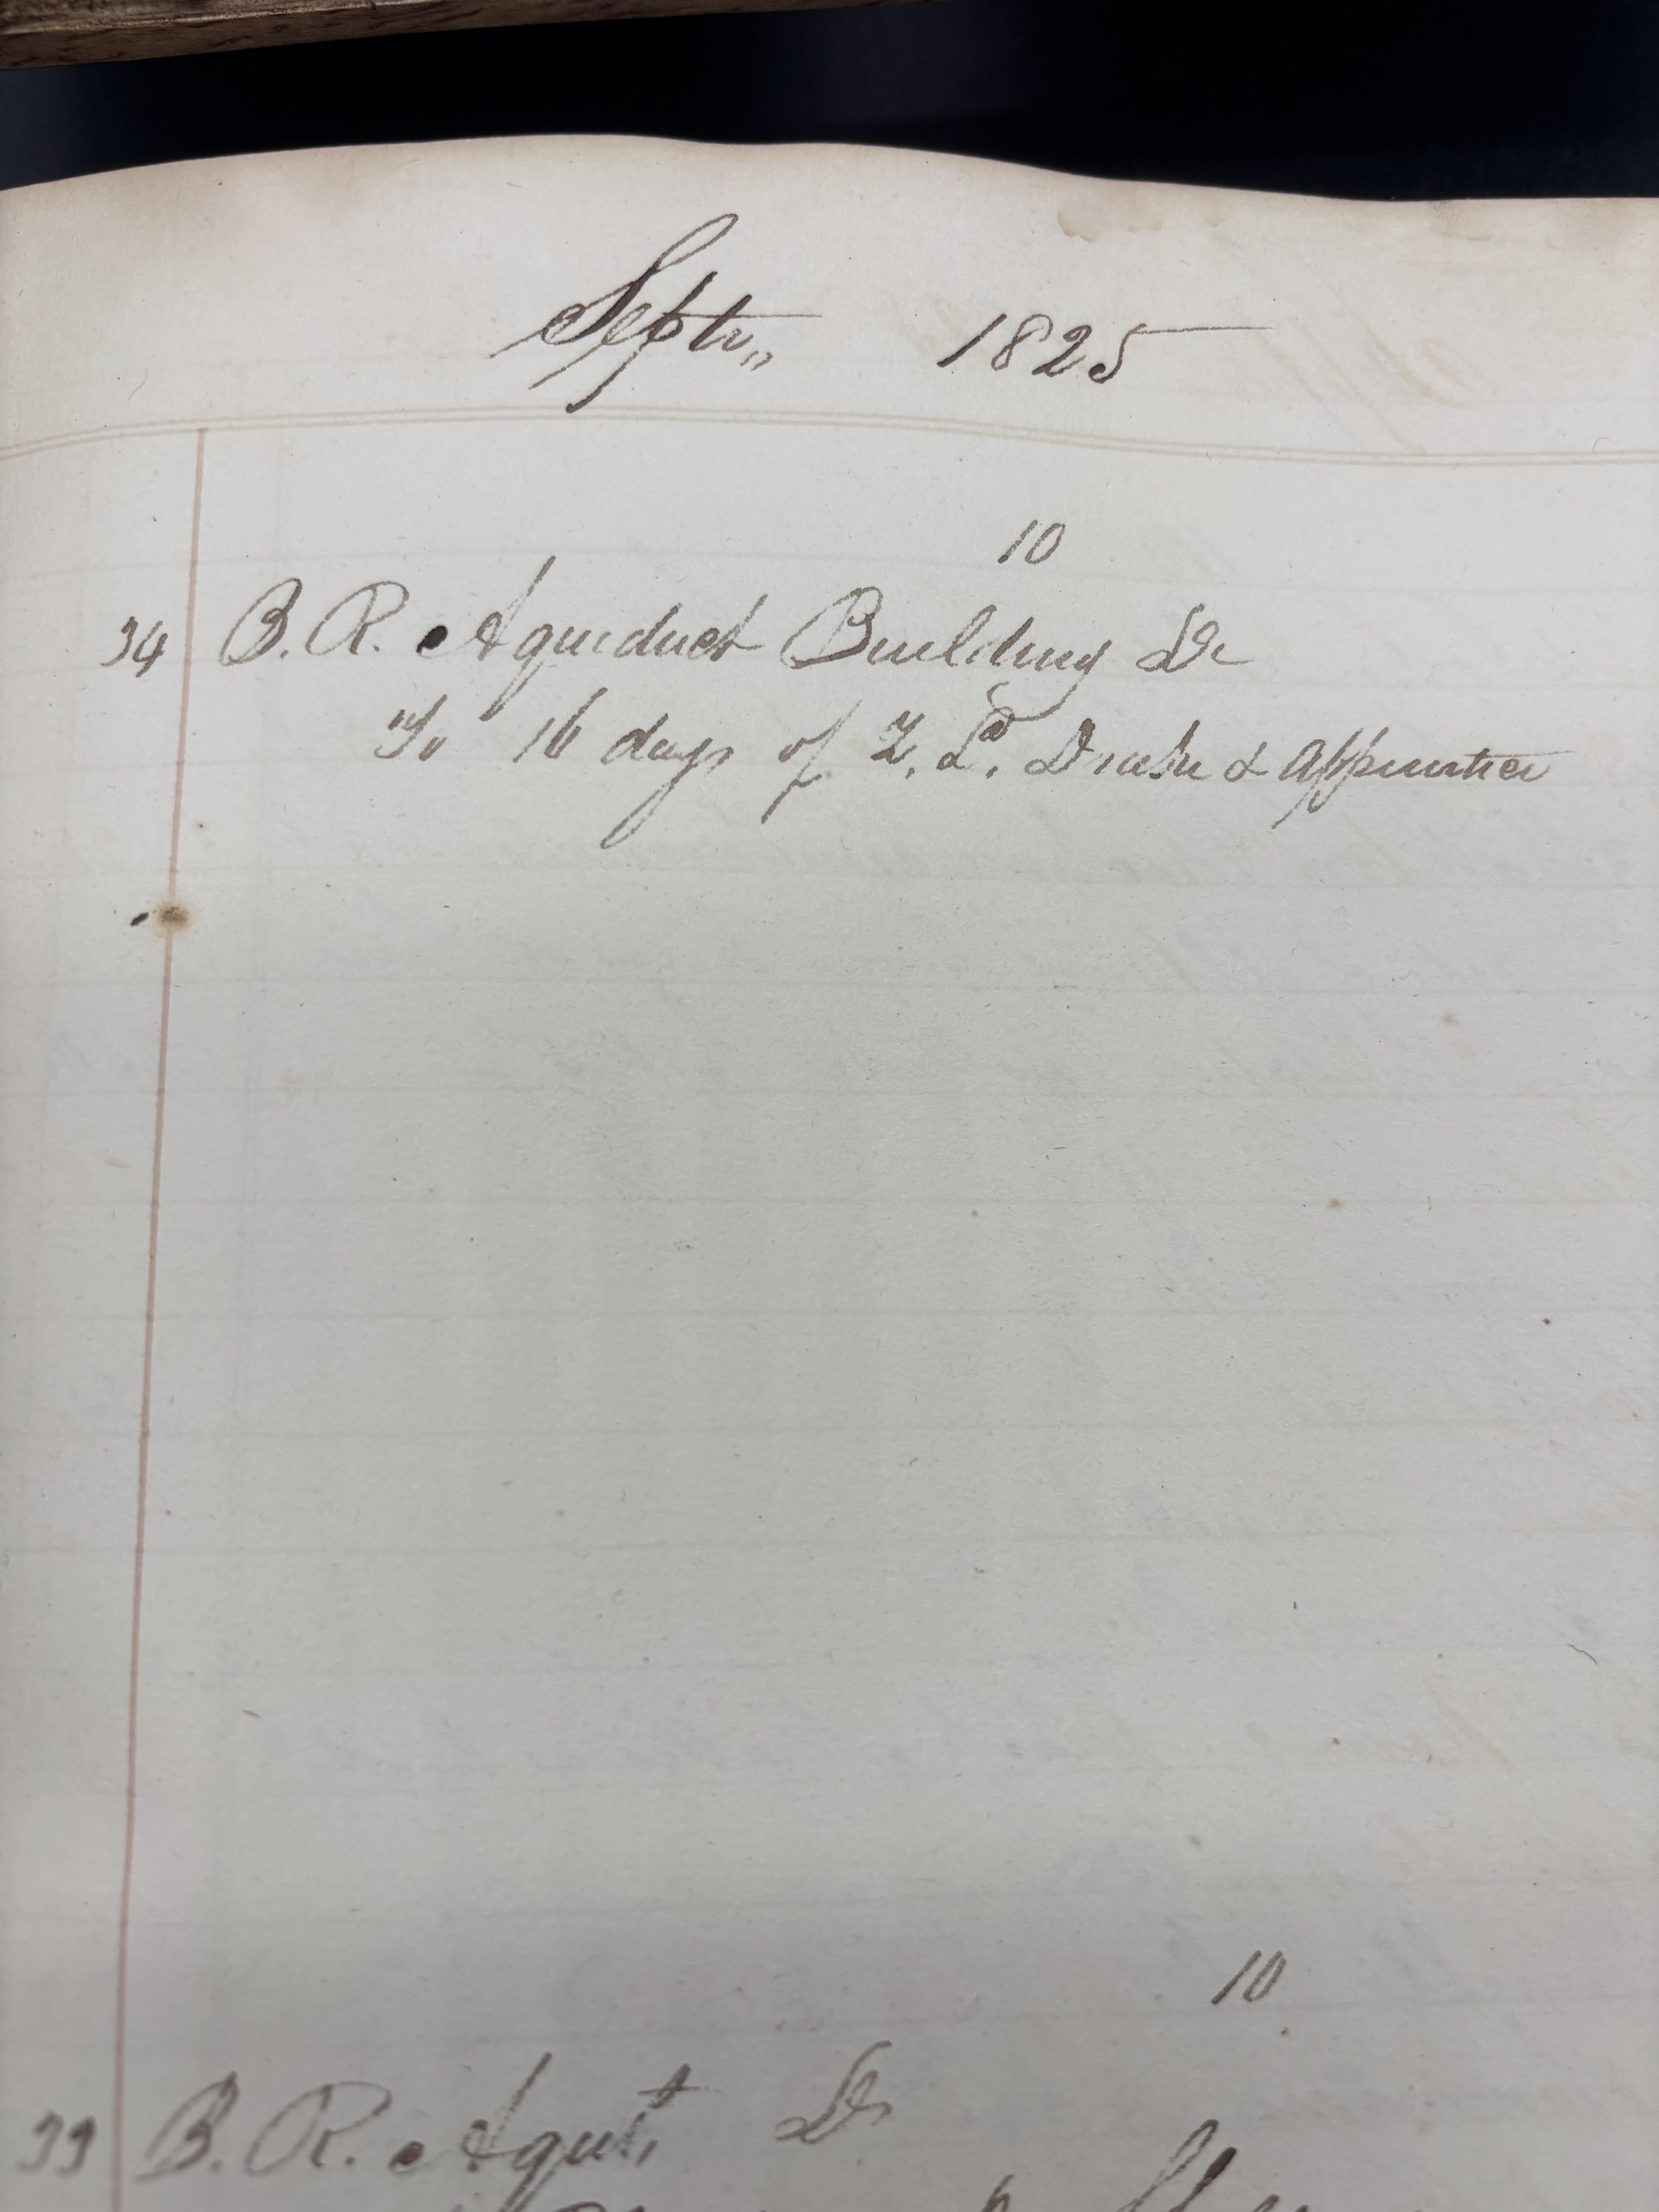 Septr,, 1825
10
34 B. R. Aqueduct Building Dr
To 16 days of Z. Ld. Drake & Apprentice
10
33 B. R. Aqut, Dr